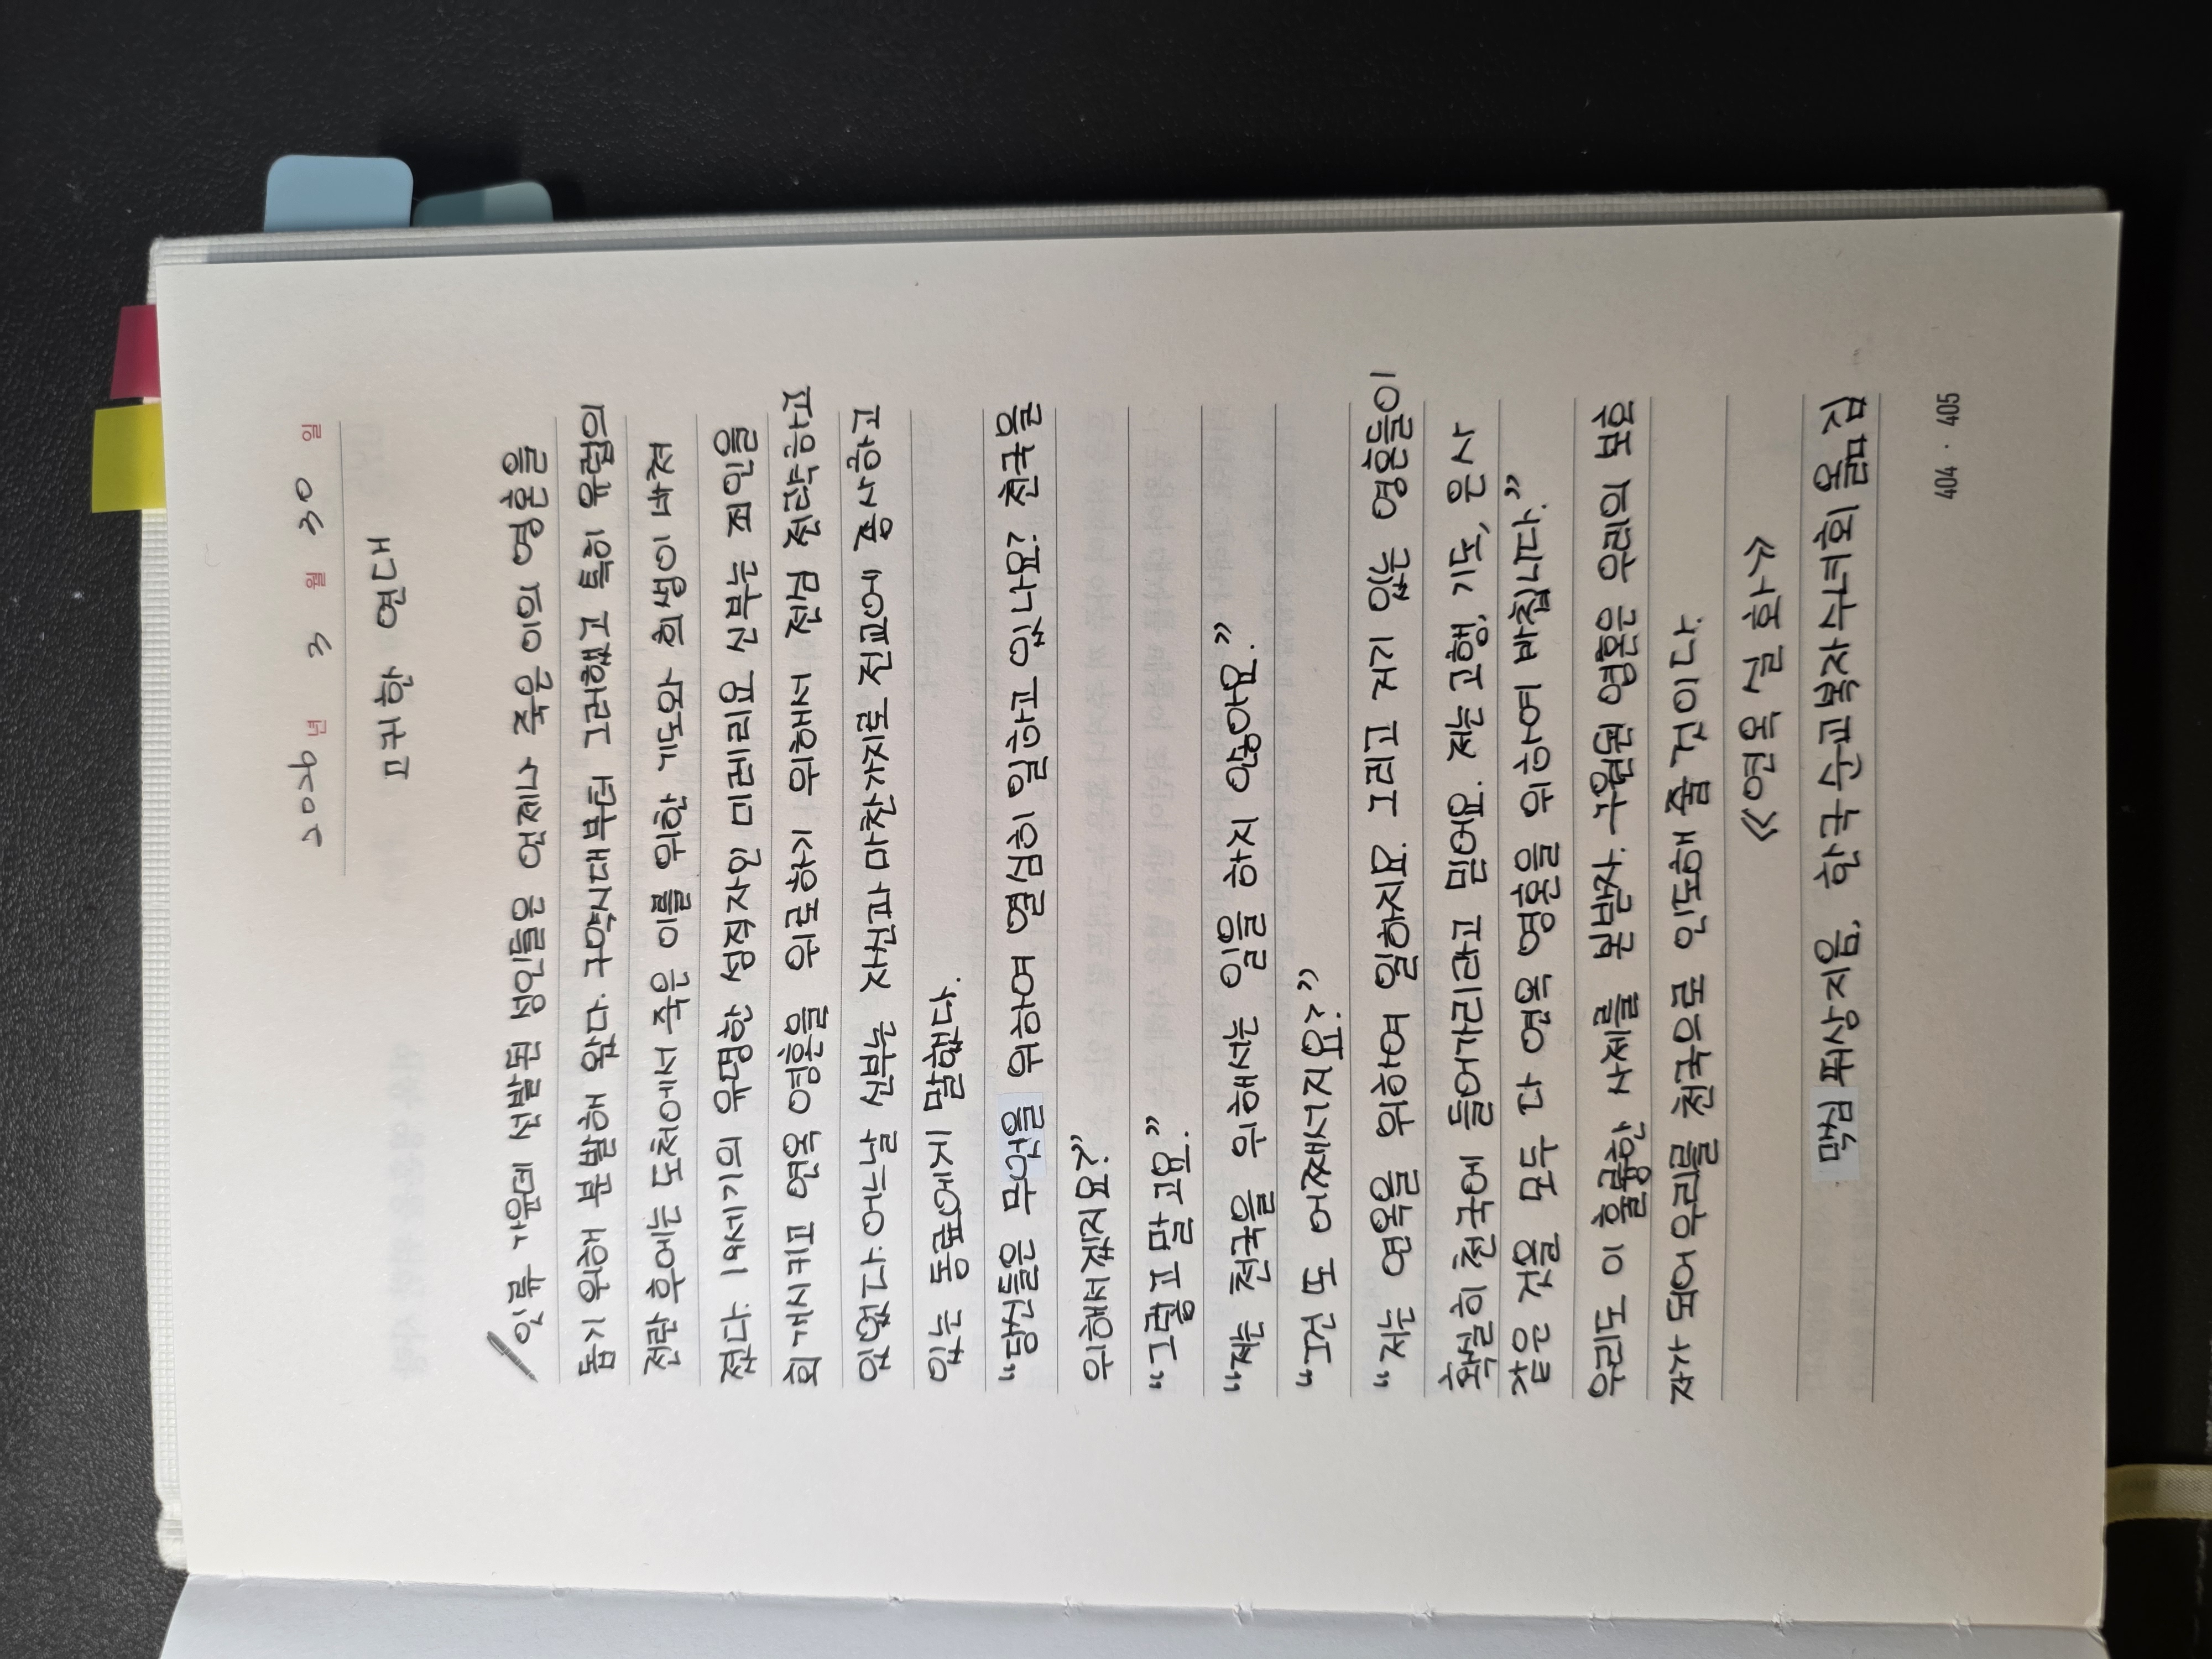 2026년 3월 30일
고귀한 연대
인류 가운데 선발된 성인들은 언제나 죽은 이의 영혼을
돕기 위해 분발해 왔다. 구약시대부터 그러했고 특히 유럽의
전란 후에는 도처에서 죽은 이를 위한 기도와 희생이 바쳐
졌다. 19세기의 유명한 성직자인 미레리요 신부는 죄인을
회개시키고 연옥 영혼을 위로하기 위해서 전심 전략하고
있었다. 어느날 신부는 자신과 마찬가지로 전교에 종사하고
있는 동료에게 말했다.
“당신들은 무엇을 위하여 열심히 일하고 있나요? 천국을
위해서겠지요?”
“그렇고 말고요.”
“저는 천국을 위해서는 일을 하지 않아요.”
“그건 또 어째서지요?”
“저는 연옥을 위하여 일하지요. 그리고 거기 있는 영혼들이
확실히 천국에 들어가리라고 믿어요. 저는 고행, 기도, 은사
같은 것을 모두 다 연옥 영혼을 위하여 바칩니다.”
우리도 이 훌륭한 사제를 본받자. 구원된 영혼은 우리의 보호
자가 되어 우리를 천국으로 인도해 줄 것이다.
《연옥 실화》
막심 퓌상 지음, 한국 순교복자수녀회 옮김
404 · 405